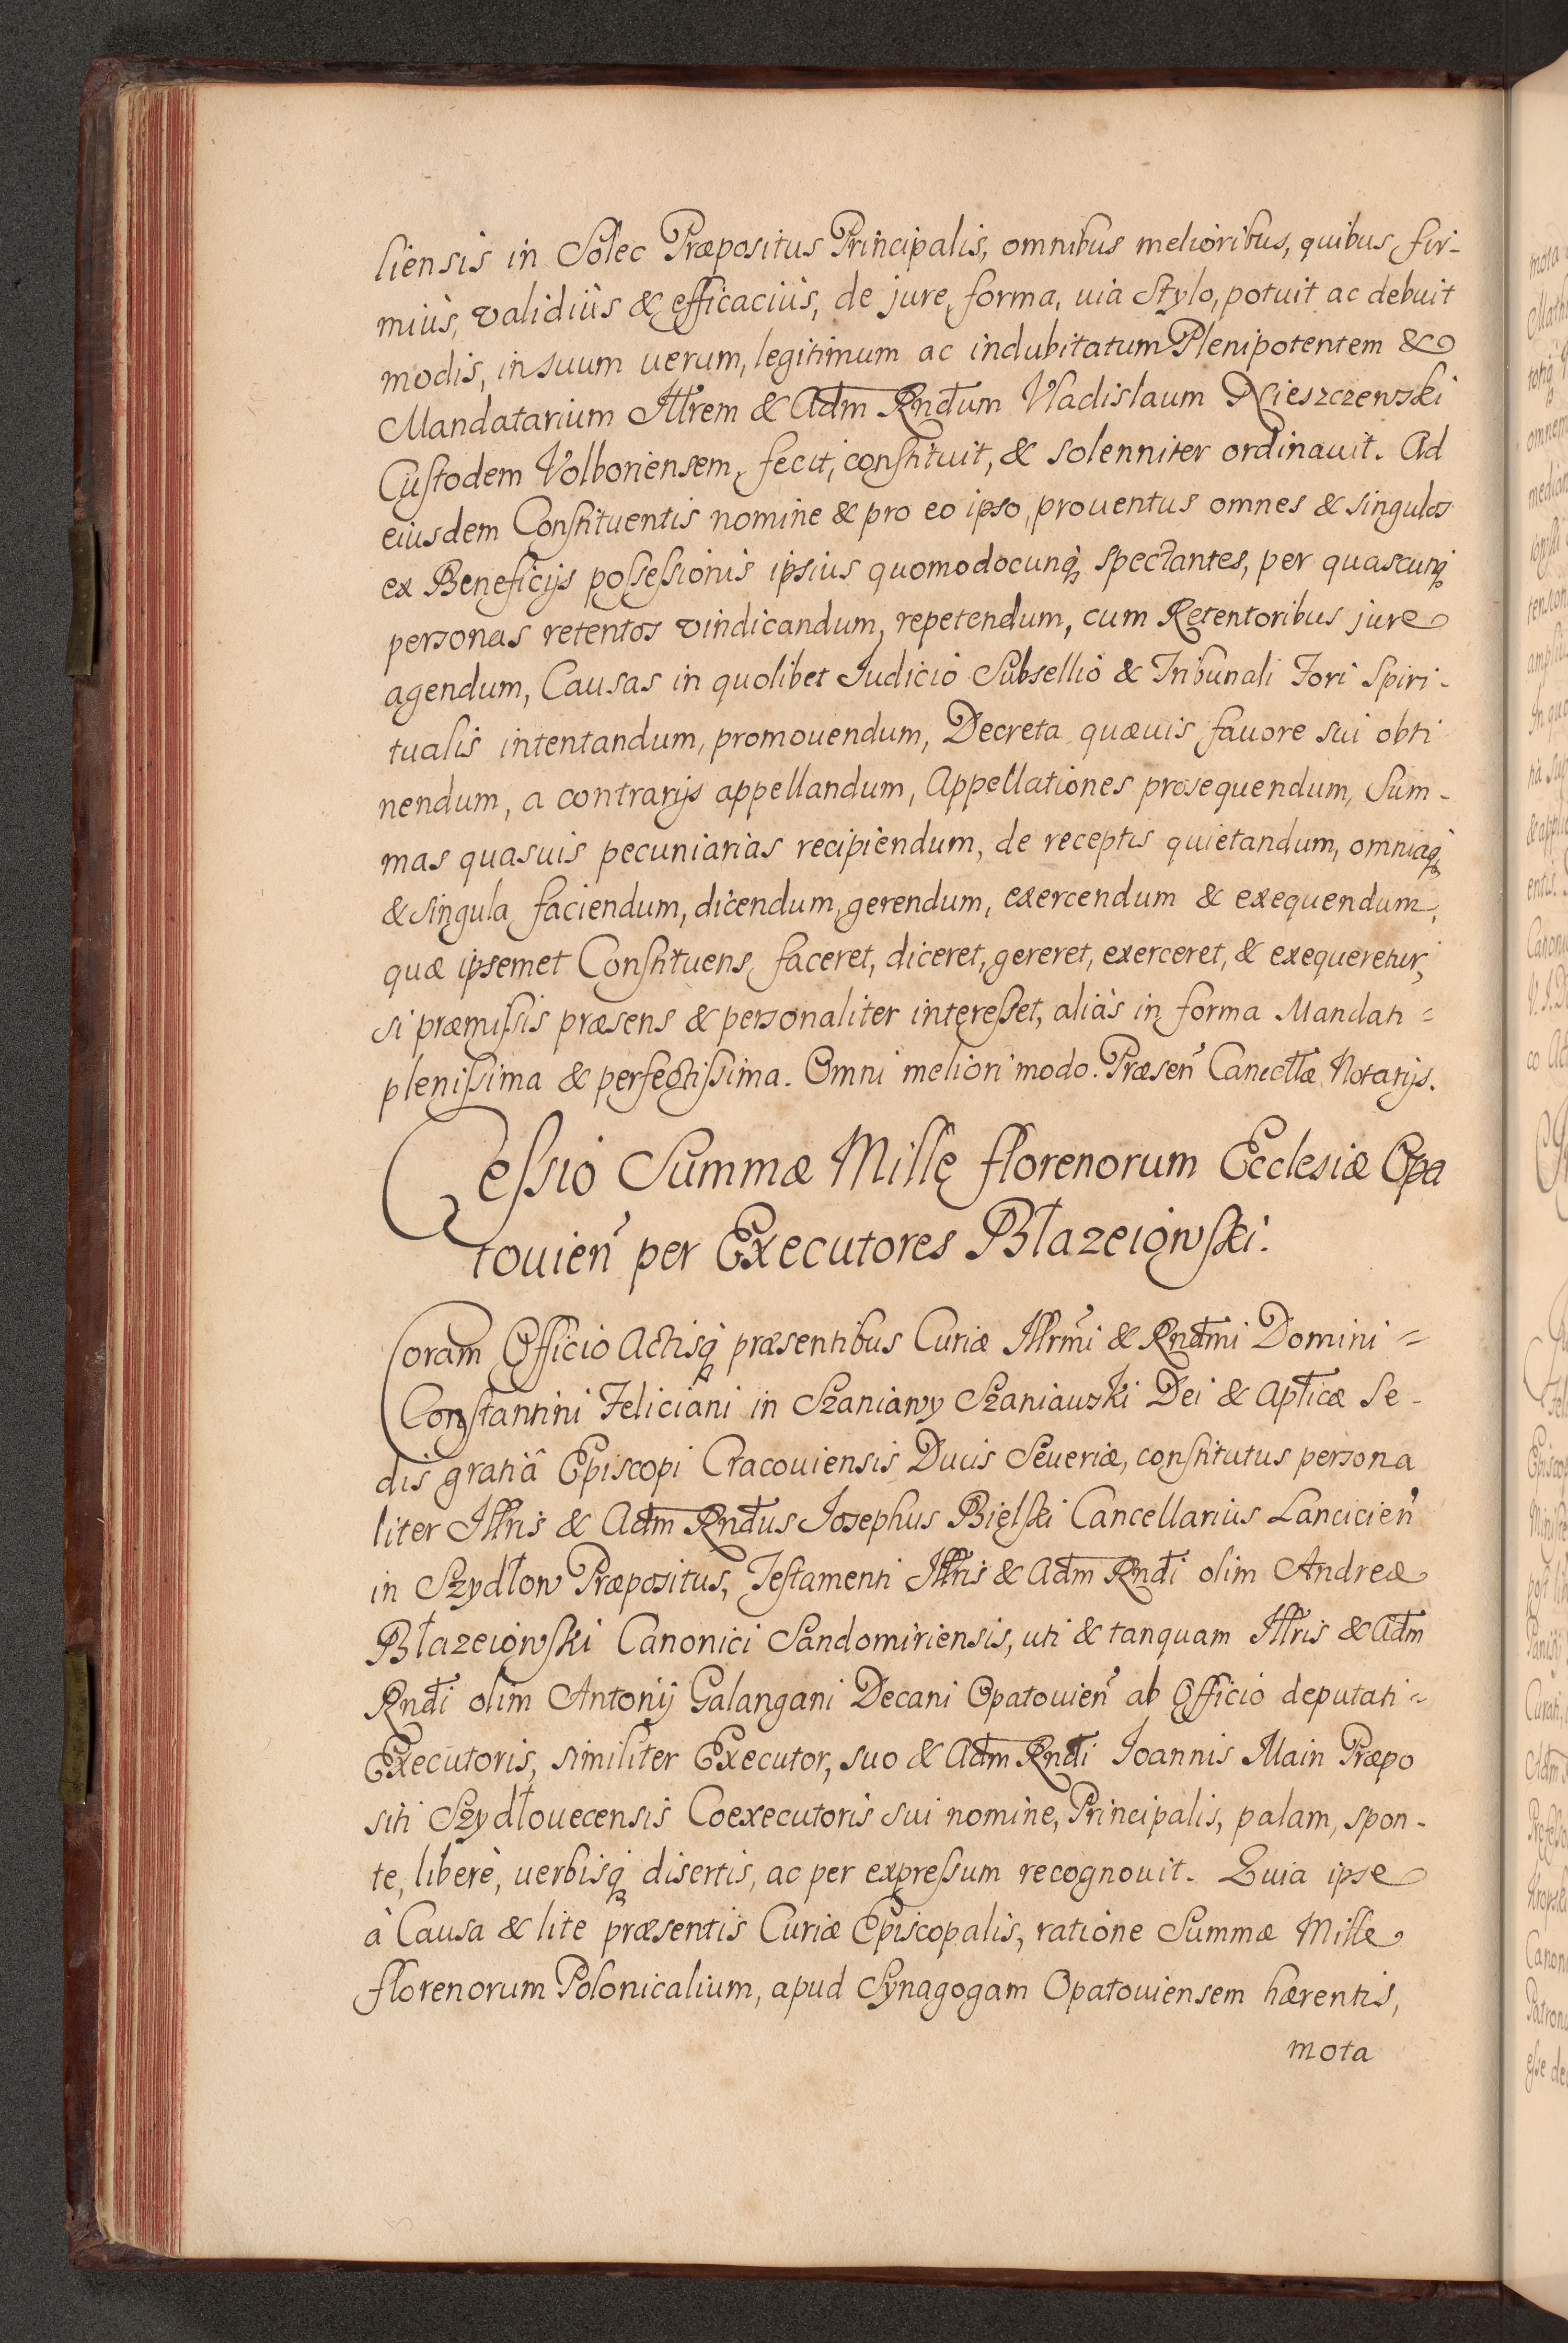 liensis in Solec Præpositus Principalis, omnibus melioribus, quibus fir-
miùs, validiùs & efficaciùs, de jure, forma, uia Stylo, potuit ac debuit
modis, in suum uerum, legitimum ac indubitatum Plenipotentem &
Mandatarium Illrem & Adm Rndum Vladislaum Nieszczewski
Custodem Volboriensem, fecit, constituit, & solenniter ordinauit. Ad
eiusdem Constituentis nomine & pro eo ipso, prouentus omnes & singulos
ex Beneficijs possessionis ipsius quomodocunq; spectantes, per quascunq;
personas retentos vindicandum, repetendum, cum Retentoribus jure
agendum, Causas in quolibet Iudicio Subsellio & Tribunali Fori Spiri-
tualis intentandum, promouendum, Decreta quæuis fauore sui obti
nendum, a contrarijs appellandum, Appellationes prosequendum, Sum-
mas quasuis pecuniarias recipiendum, de receptis quietandum, omniaq;
& singula faciendum, dicendum, gerendum, exercendum & exequendum,
quæ ipsemet Constituens faceret, diceret, gereret, exerceret, & exequeretur,
si præmissis præsens & personaliter interesset, aliàs in forma Mandati =
plenissima & perfectissima. Omni meliori modo. Præsen Canctlæ Notarijs.
Cessio Summæ Mille florenorum Ecclesiæ Opa
touien per Executores Błazeiowski.
Coram Officio Actisq; præsentibus Curiæ Illrmi & Rndmi Domini =
Constantini Feliciani in Szaniawy Szaniawski Dei & Apticæ Se-
dis gratiâ Episcopi Cracouiensis Ducis Seueriæ, constitutus persona
liter Illris & Adm Rndus Josephus Bielski Cancellarius Lancicien
in Szydłow Præpositus, Testamenti Illris & Adm Rndi olim Andreæ
Błazeiowski Canonici Sandomiriensis, uti & tanquam Illris & Adm
Rndi olim Antonij Galangani Decani Opatouien ab Officio deputati =
Executoris, similiter Executor, suo & Adm Rndi Ioannis Main Præpo
siti Szydłouecensis Coexecutoris sui nomine, Principalis, palam, spon-
te, liberè, uerbisq; disertis, ac per expressum recognouit. Quia ipse
à Causa & lite præsentis Curiæ Episcopalis, ratione Summæ Mille
florenorum Polonicalium, apud Synagogam Opatouiensem hærentis,
mota